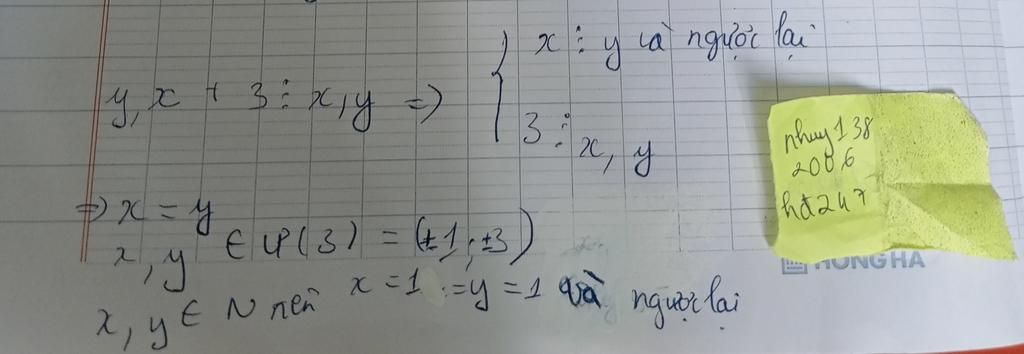 x ⋮ y và ngược lại
y, x + 3 ⋮ x, y =>
3 ⋮ x, y
=> x = y
x, y ∈ Ư(3) = (±1; ±3)
x, y ∈ N nên x = 1 := y = 1 và ngược lại
nhuy138
2006
hđ247
HONG HA